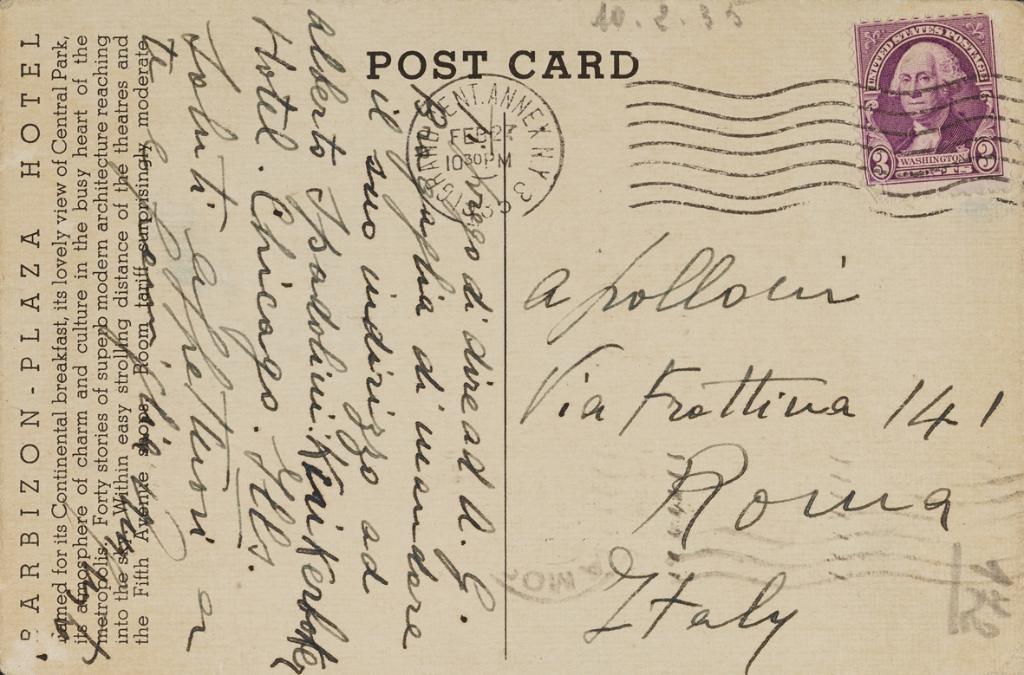 BARBIZON-PLAZA HOTEL
Famed for its Continental breakfast, its lovely view of Central Park,
its atmosphere of charm and culture in the busy heart of the
metropolis. Forty stories of superb modern architecture reaching
into the sky. Within easy strolling distance of the theatres and
the Fifth Avenue shops. Room tariff surprisingly moderate.
POST CARD
10.2.35
GRAND CENT. ANNEX N.Y. 3
FEB 27
10 30 PM
1935
UNITED STATES POSTAGE
3 WASHINGTON 3
prego di dire ad A. G.
Battaglia di mandare
il suo indirizzo ad
Alberto Spadolini. Knikerboker
Hotel. Chicago. Ills.
Saluti affettuosi a
te
Apolloni
Via Frattina 141
Roma
Italy